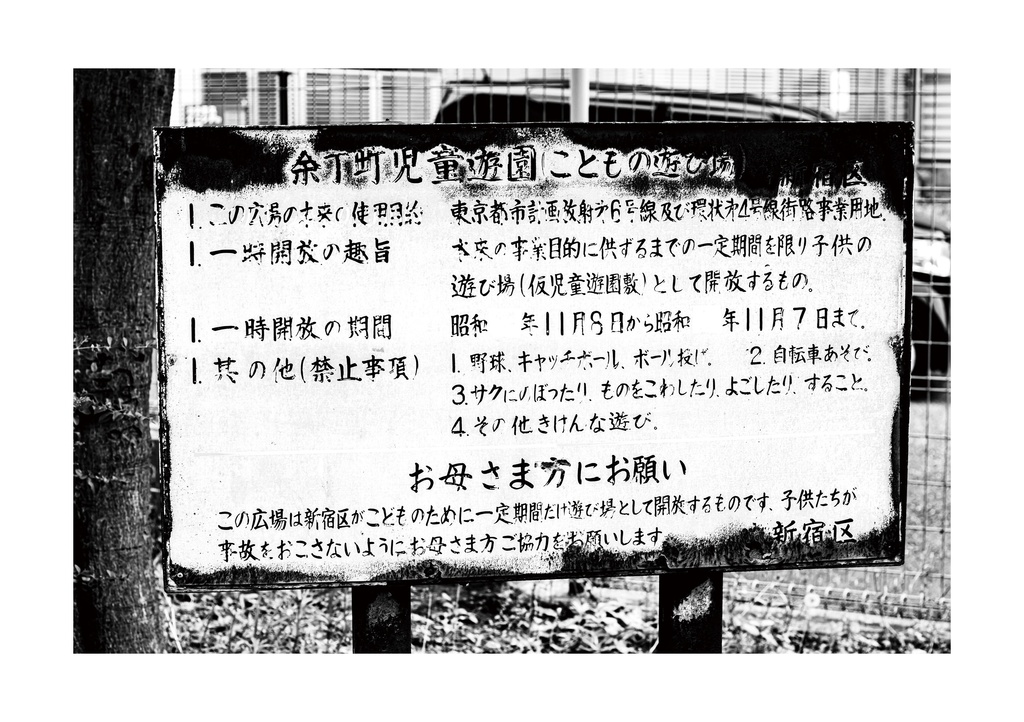 余丁町児童遊園(こともの遊び場)
新宿区
1. この広場の本来の使用目的 東京都市計画放射第6号線及び環状第4号線街路事業用地.
1. 一時開放の趣旨 本来の事業目的に供するまでの一定期間を限り子供の
遊び場(仮児童遊園敷)として開放するもの。
1. 一時開放の期間 昭和 年11月8日から昭和 年11月7日まで.
1. 其の他(禁止事項) 1. 野球、キャッチボール、ボール投げ. 2. 自転車あそび.
3. サクにのぼったり、ものをこわしたり、よごしたり、すること.
4. その他きけんな遊び.
お母さま方にお願い
この広場は新宿区がこどものために一定期間だけ遊び場として開放するものです、子供たちが
事故をおこさないようにお母さま方ご協力をお願いします
新宿区